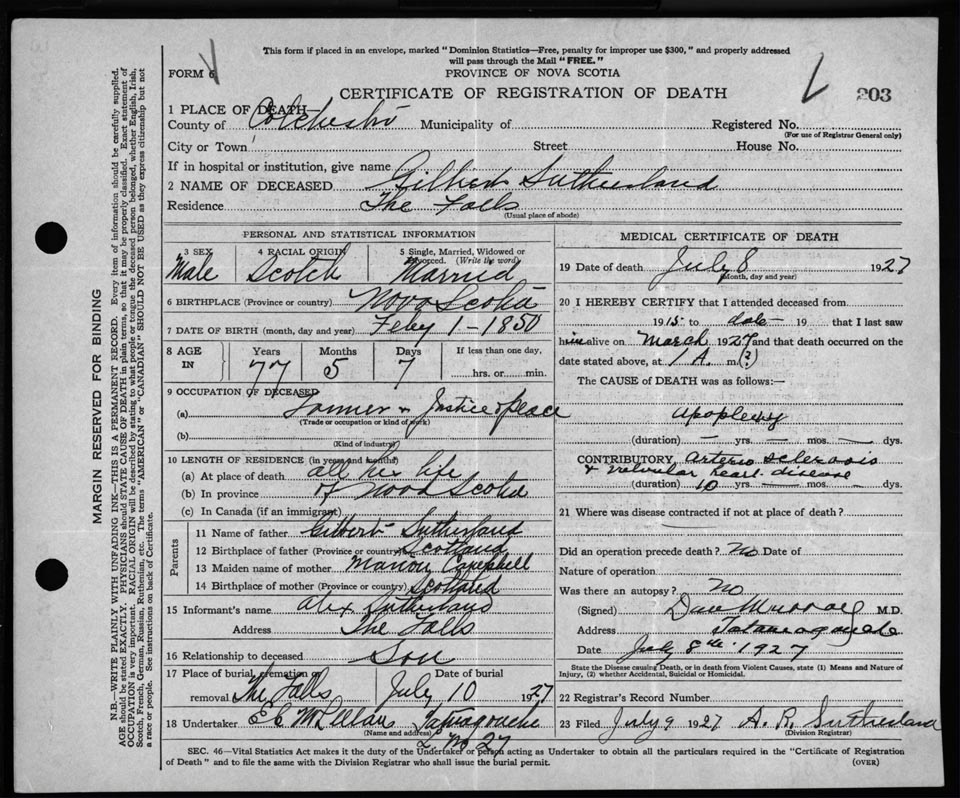 This form if placed in an envelope, marked "Dominion Statistics—Free, penalty for improper use $300," and properly addressed
will pass through the Mail "FREE."
FORM 6
PROVINCE OF NOVA SCOTIA
CERTIFICATE OF REGISTRATION OF DEATH
203
1 PLACE OF DEATH—
County of Colchester Municipality of Registered No.
(For use of Registrar General only)
City or Town Street House No.
If in hospital or institution, give name
2 NAME OF DECEASED Gilbert Sutherland
Residence The Falls
(Usual place of abode)
PERSONAL AND STATISTICAL INFORMATION
3 SEX 4 RACIAL ORIGIN 5 Single, Married, Widowed or
Divorced. (Write the word)
Male Scotch Married
6 BIRTHPLACE (Province or country) Nova Scotia
7 DATE OF BIRTH (month, day and year) Feby 1-1850
8 AGE IN Years Months Days If less than one day,
77 5 7 hrs. or min.
9 OCCUPATION OF DECEASED
(a) Farmer & Justice of Peace
(Trade or occupation or kind of work)
(b)
(Kind of industry)
10 LENGTH OF RESIDENCE (in years and months)
(a) At place of death all his life
(b) In province of Nova Scotia
(c) In Canada (if an immigrant)
Parents
11 Name of father Gilbert Sutherland
12 Birthplace of father (Province or country) Scotland
13 Maiden name of mother Marion Campbell
14 Birthplace of mother (Province or country) Scotland
15 Informant's name Alex. Sutherland
Address The Falls
16 Relationship to deceased Son
17 Place of burial, cremation or Date of burial
removal The Falls July 10 1927
18 Undertaker McLellan Tatamagouche
(Name and address)
L No 27
MEDICAL CERTIFICATE OF DEATH
19 Date of death July 8 1927
(Month, day and year)
20 I HEREBY CERTIFY that I attended deceased from
1915 to date 19 that I last saw
him alive on March 1927 and that death occurred on the
date stated above, at 1 A. m (?)
The CAUSE of DEATH was as follows:—
apoplexy
(duration) — yrs. — mos. — dys.
CONTRIBUTORY Arterio sclerosis
& valvular heart disease
(duration) 10 yrs. — mos. — dys.
21 Where was disease contracted if not at place of death?
Did an operation precede death? No Date of
Nature of operation
Was there an autopsy? No
(Signed) Dan Murray M.D.
Address Tatamagouche
Date July 8th 1927
State the Disease causing Death, or in death from Violent Causes, state (1) Means and Nature of
Injury, (2) whether Accidental, Suicidal or Homicidal.
22 Registrar's Record Number
23 Filed July 9 1927 A. R. Sutherland
(Division Registrar)
SEC. 46—Vital Statistics Act makes it the duty of the Undertaker or person acting as Undertaker to obtain all the particulars required in the "Certificate of Registration
of Death" and to file the same with the Division Registrar who shall issue the burial permit. (OVER)
MARGIN RESERVED FOR BINDING
N.B.—WRITE PLAINLY WITH UNFADING INK—THIS IS A PERMANENT RECORD. Every item of information should be carefully supplied.
AGE should be stated EXACTLY. PHYSICIANS should STATE CAUSE OF DEATH in plain terms, so that it may be properly classified. Exact statement of
OCCUPATION is very important. RACIAL ORIGIN will be described by stating to what people or tongue the deceased person belonged, whether English, Irish,
Scotch, French, German, Russian, Ruthenian, etc. The terms "AMERICAN" or "CANADIAN" SHOULD NOT BE USED as they express citizenship but not
a race or people. See instructions on back of Certificate.